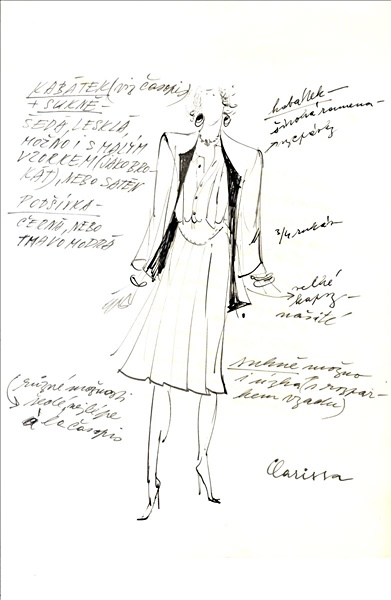 KABÁTEK (viz časopis)
+ SUKNĚ -
ŠEDÁ, LESKLÁ,
MOŽNO I S MALÝM
VZORKEM (JAKO BRO-
KÁT), NEBO SATÉN
PODŠÍVKA -
ČERNÁ, NEBO
TMAVOMODRÁ
kabátek -
široká ramena -
vycpávky
3/4 rukáv
velké
kapsy -
našité
sukně možno
i úzká (s rozpar-
kem vzadu)
(různé možnosti
nejlépe
à la časopis
Clarissa